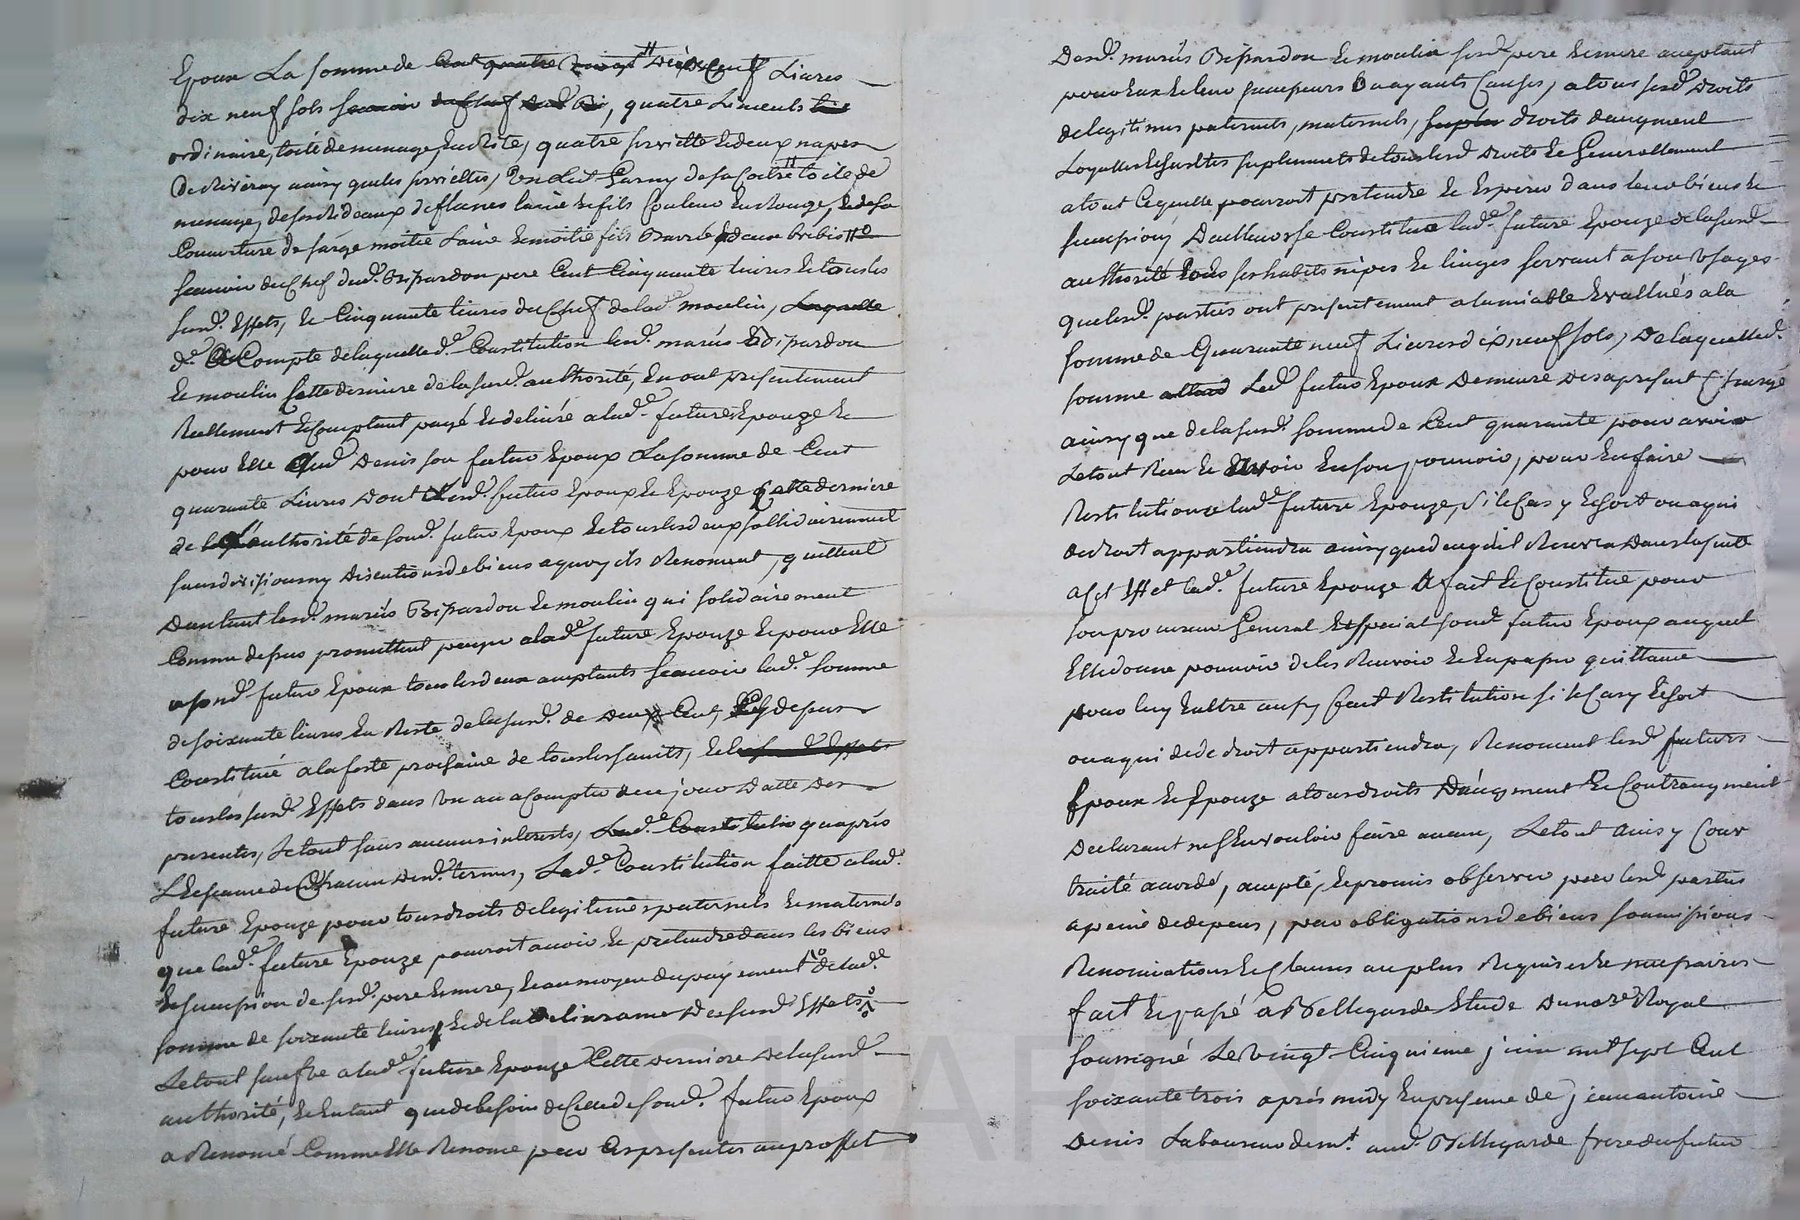 Epoux La somme de Cent quatre vingt Dix neuf Livres
dix neuf sols scavoir du chef dud. Bi, quatre Linceuls
ordinaire, toile de menage, quatre serviette et deux napes
De Riveroy ainsy que les serviettes, Un Lict Garny de sa toile de
menage, de ses rideaux de flanes laine et fils Couleur Rouge, et de sa
Couverture de sarge moitié Laine et moitié fils Barrée et deux brebis
scavoir du Chef dud. Bipardon pere Cent Cinquante livres et tous les
susd. Effets, et Cinquante livres du Chef de lad. moulin, Laquelle
d. A Compte de laquelle d. Constitution lesd. mariés Bipardon
et moulin Cette derniere de la susd. authorité, En ont presentement
Reellement et Comptant payé et delivré a lad. future Epouze et
pour Elle aud. Denis son futur Epoux La somme de Cent
quarante Livres Dont Lesd. futur Epoux et Epouze Cette derniere
de l'authorité de sond. futur Epoux et tous lesd. deux sollidairement
sans division ny Discution de biens a quoy ils Renoncent, quittent
Dautant lesd. mariés Bipardon et moulin qui solidairement
Comme dessus promettent payer a lad. future Epouze et pour Elle
a sond. futur Epoux tous lesd. deux acceptants scavoir lad. somme
de soixante livres En Reste de la susd. de Deux Cent, Cy dessus
Constitué a la feste prochaine de tous les saints, et les susd. Effets
tous les susd. Effets dans Un an a Compter de ce jour Datte Des
presentes, le tout sans aucuns interests, Lad. Constitution qu'aprés
L'Echeance de Chacun Desd. termes, Lad. Constitution faitte a lad.
future Epouze pour tous droits de legitimes paternels et maternels
que lad. future Epouze pourroit avoir et pretendre dans les biens
et succession de sesd. pere et mere, et au moyen du payement de lad.
somme de soixante livres, et de la Delivrance Des susd. Effets
Le tout sauf a lad. future Epouze Cette derniere de la susd.
authorité, et En tant que de besoin de Celle de sond. futur Epoux
a Renoncé Comme Elle Renonce par Ces presentes au proffit
Desd. mariés Bipardon et moulin sesd. pere et mere acceptant
pour Eux et leur successeurs Ou ayants Causes, a tous sesd. Droits
de legitimes paternels, maternels, droits d'augment
Loyelles et suplements de tous lesd. Droits et Generallement
a tout Ce qu'elle pourroit pretendre et Esperer dans leurs biens et
succession, D'ailleurs se Constitue lad. future Epouze de la susd.
authorité tous ses habits nipes et linges servant a son Usages
que lesd. parties ont presentement a l'amiable Evallués a la
somme de Quarante neuf Livres dix neuf sols, De laquelle d.
somme Led. futur Epoux Demeure Des apresent Chargé
ainsy que de la susd. somme de Cent quarante pour avoir
Le tout Rieu et avoir En son pouvoir, pour En faire
Restitution a lad. future Epouze, si le Cas y Echoit ou a qui
de droit appartiendra ainsy que de ce qu'il Recevra Dans la suitte
a Cet Effet lad. future Epouze A fait et Constitué pour
son procureur General et special sond. futur Epoux auquel
Elle donne pouvoir de les Recevoir et En passer quittance
pour luy Entre aussy faite Restitution si le Cas y Echoit
ou a qui de droit appartiendra, Renoncent lesd. futurs
Epoux et Epouze a tous droits D'augment et Contraugment
Declarant n'En vouloir faire aucun, Le tout Ainsy Con
traité accordé, accepté, et promis observer par lesd. parties
a peine de depens, par obligations de biens soumissions
Renonciations et Clauses au plus Requises et necessaires
fait et passé a Bellegarde Etude Du nore. Royal
soussigné Le Vingt Cinquieme juin mil sept Cent
soixante trois aprés midy En presence de jean antoine
Denis Laboureur demt. aud. Bellegarde frere du futur